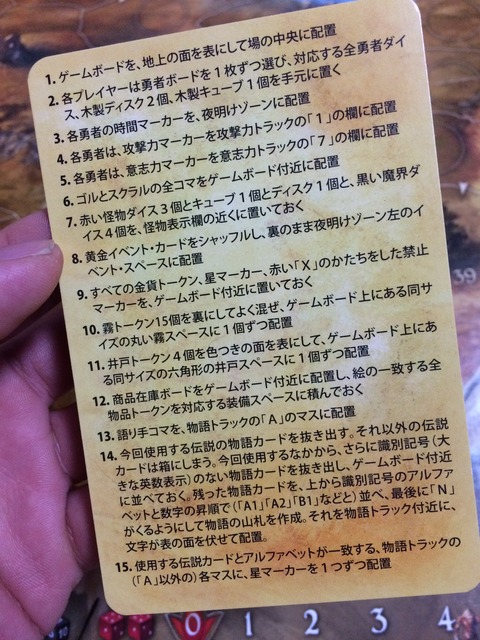 1. ゲームボードを、地上の面を表にして場の中央に配置
2. 各プレイヤーは勇者ボードを1枚ずつ選び、対応する全勇者ダイ
ス、木製ディスク2個、木製キューブ1個を手元に置く
3. 各勇者の時間マーカーを、夜明けゾーンに配置
4. 各勇者は、攻撃力マーカーを攻撃力トラックの「1」の欄に配置
5. 各勇者は、意志力マーカーを意志力トラックの「7」の欄に配置
6. ゴルとスクラルの全コマをゲームボード付近に配置
7. 赤い怪物ダイス3個とキューブ1個とディスク1個と、黒い魔界ダ
イス4個を、怪物表示欄の近くに置いておく
8. 黄金イベント・カードをシャッフルし、裏のまま夜明けゾーン左のイ
ベント・スペースに配置
9. すべての金貨トークン、星マーカー、赤い「X」のかたちをした禁止
マーカーを、ゲームボード付近に置いておく
10. 霧トークン15個を裏にしてよく混ぜ、ゲームボード上にある同サ
イズの丸い霧スペースに1個ずつ配置
11. 井戸トークン4個を色つきの面を表にして、ゲームボード上にあ
る同サイズの六角形の井戸スペースに1個ずつ配置
12. 商品在庫ボードをゲームボード付近に配置し、絵の一致する全
物品トークンを対応する装備スペースに積んでおく
13. 語り手コマを、物語トラックの「A」のマスに配置
14. 今回使用する伝説の物語カードを抜き出す。それ以外の伝説
カードは箱にしまう。今回使用するなかから、さらに識別記号(大
きな英数表示)のない物語カードを抜き出し、ゲームボード付近
に並べておく。残った物語カードを、上から識別記号のアルファ
ベットと数字の昇順で(「A1」「A2」「B1」などと)並べ、最後に「N」
がくるようにして物語の山札を作成。それを物語トラック付近に、
文字が表の面を伏せて配置。
15. 使用する伝説カードとアルファベットが一致する、物語トラックの
(「A」以外の)各マスに、星マーカーを1つずつ配置
39
0 1 2 3 4